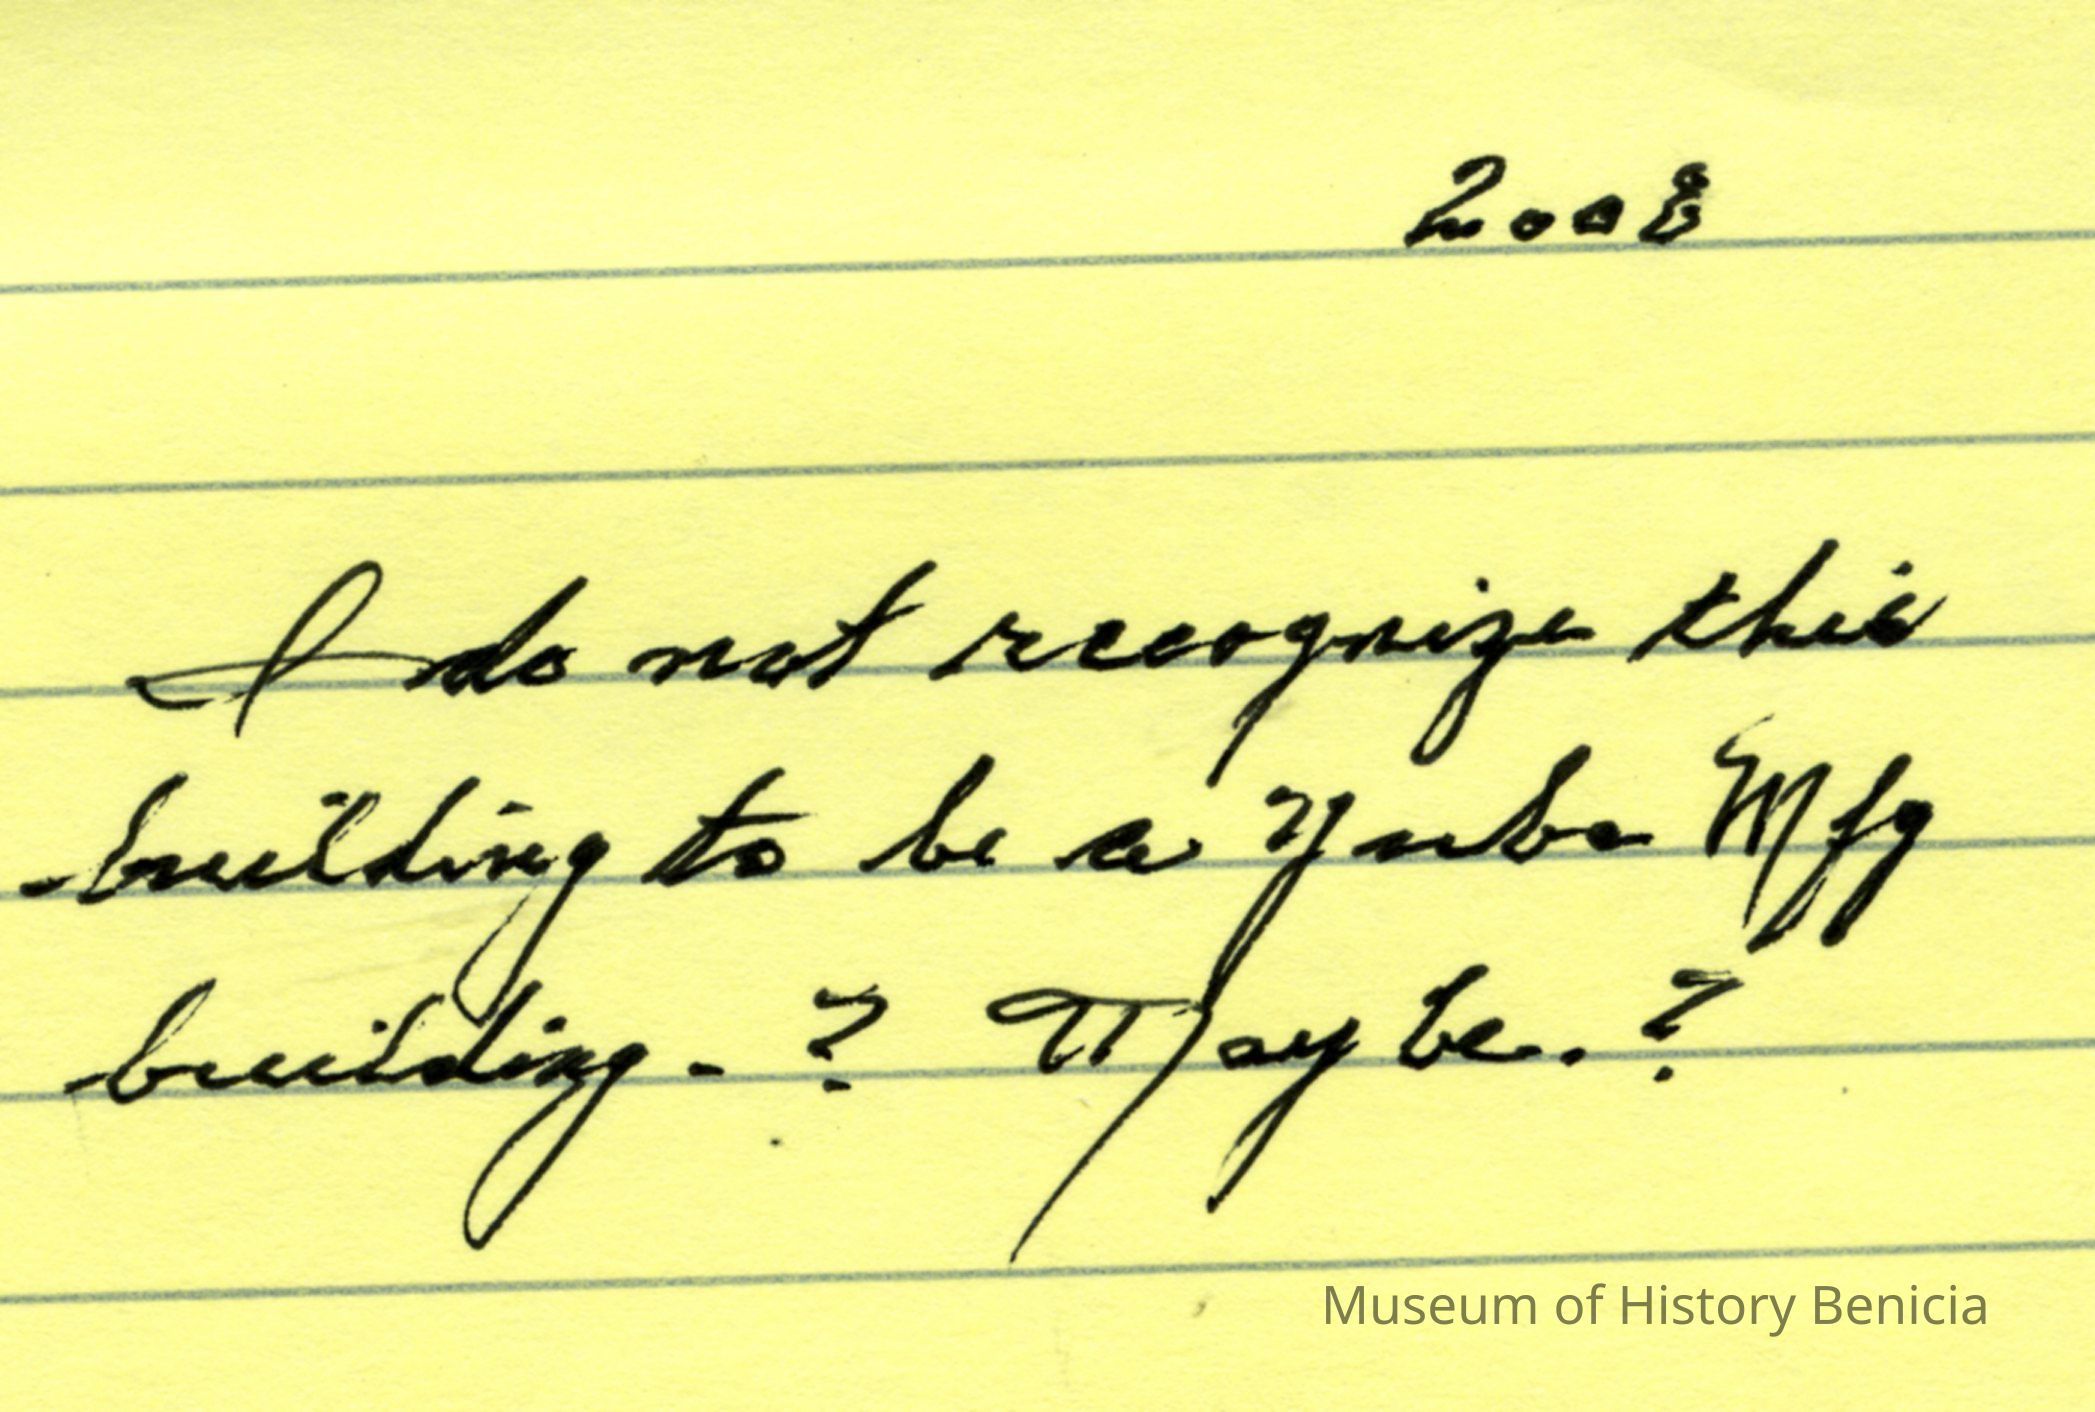 2008
I do not recognize this
building to be a Yuba Mfg
building. ? Maybe. ?
Museum of History Benicia